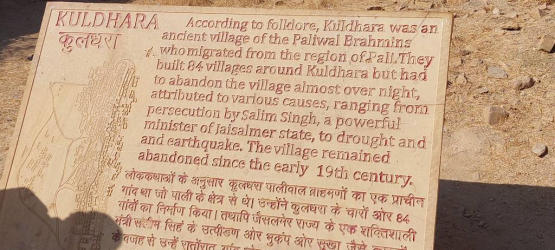 KULDHARA
कुलधरा
According to folklore, Kuldhara was an
ancient village of the Paliwal Brahmins
who migrated from the region of Pali.They
built 84 villages around Kuldhara but had
to abandon the village almost over night,
attributed to various causes, ranging from
persecution by Salim Singh, a powerful
minister of Jaisalmer state, to drought and
and earthquake. The village remained
abandoned since the early 19th century.
लोककथाओं के अनुसार कुलधरा पालीवाल ब्राह्मणों का एक प्राचीन
गांव था जो पाली के क्षेत्र से थे। उन्होंने कुलधरा के चारों ओर 84
गांवों का निर्माण किया। तथापि जैसलमेर राज्य के एक शक्तिशाली
मंत्री सलीम सिंह के उत्पीडण और भुकंप और सूखा जैसे
वजह से उन्हें रातोंरात गांव